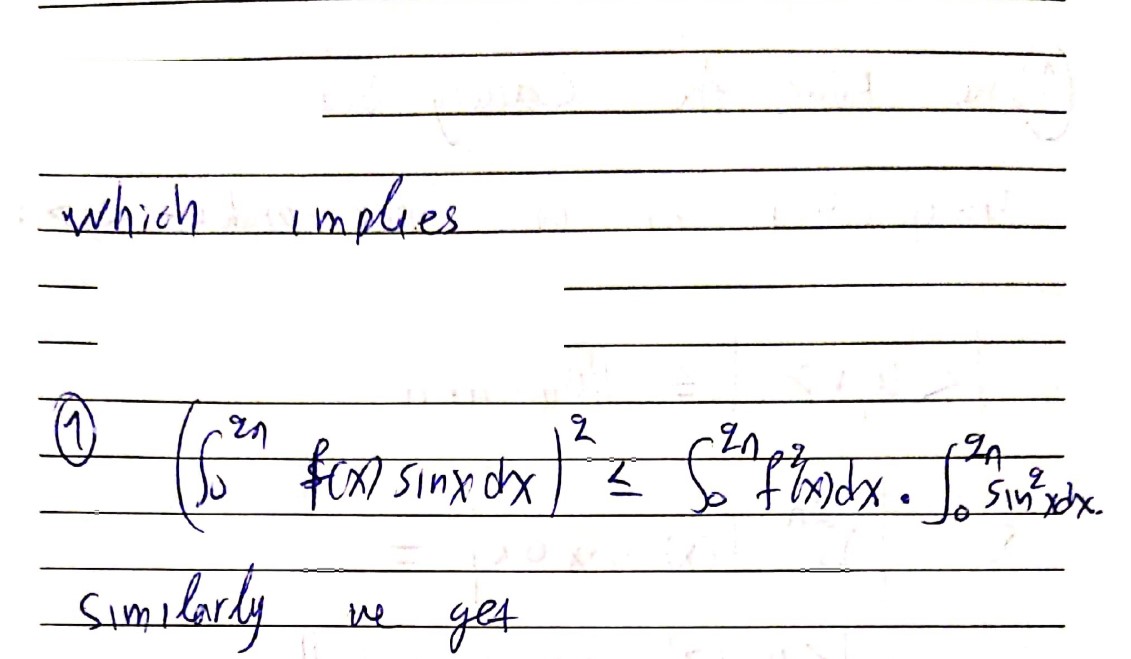 which implies
① (∫₀^{2π} f(x) sinx dx)² ≤ ∫₀^{2π} f²(x)dx · ∫₀^{2π} sin²xdx.
Similarly we get